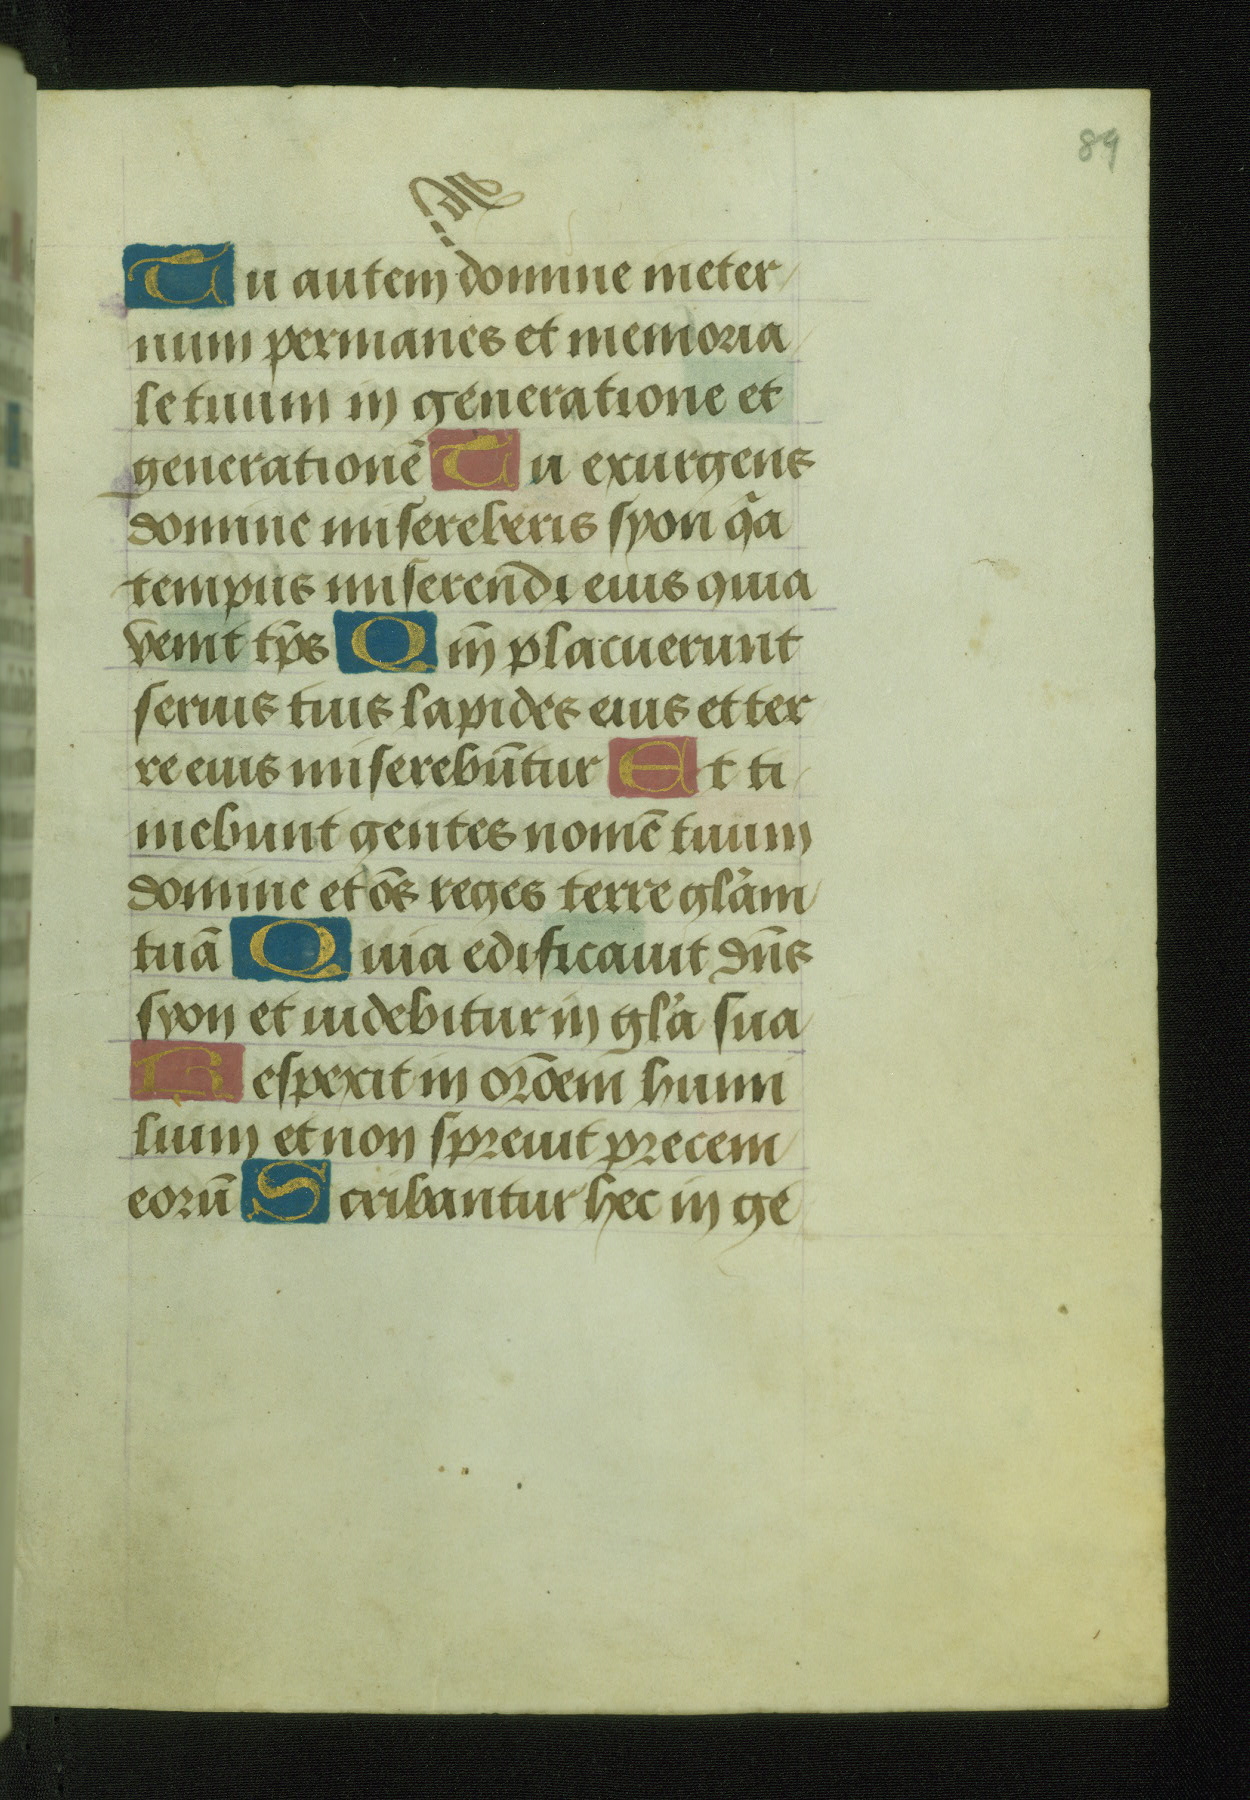 89
Tu autem domine ineter
num permanes et memoria
le tuum in generatione et
generationē Tu exurgens
domine misereberis syon q̃a
tempus miserendi eius quia
venit tp̄s Qm̄ placuerunt
seruis tuis lapides eius et ter
re eius miserebūtur Et ti
mebunt gentes nomē tuum
domine et oēs reges terre gl̃am
tuā Quia edificauit dn̄s
syon et uidebitur in gl̃a sua
Respexit in orōem humi
lium et non spreuit precem
eorū Scribantur hec in ge